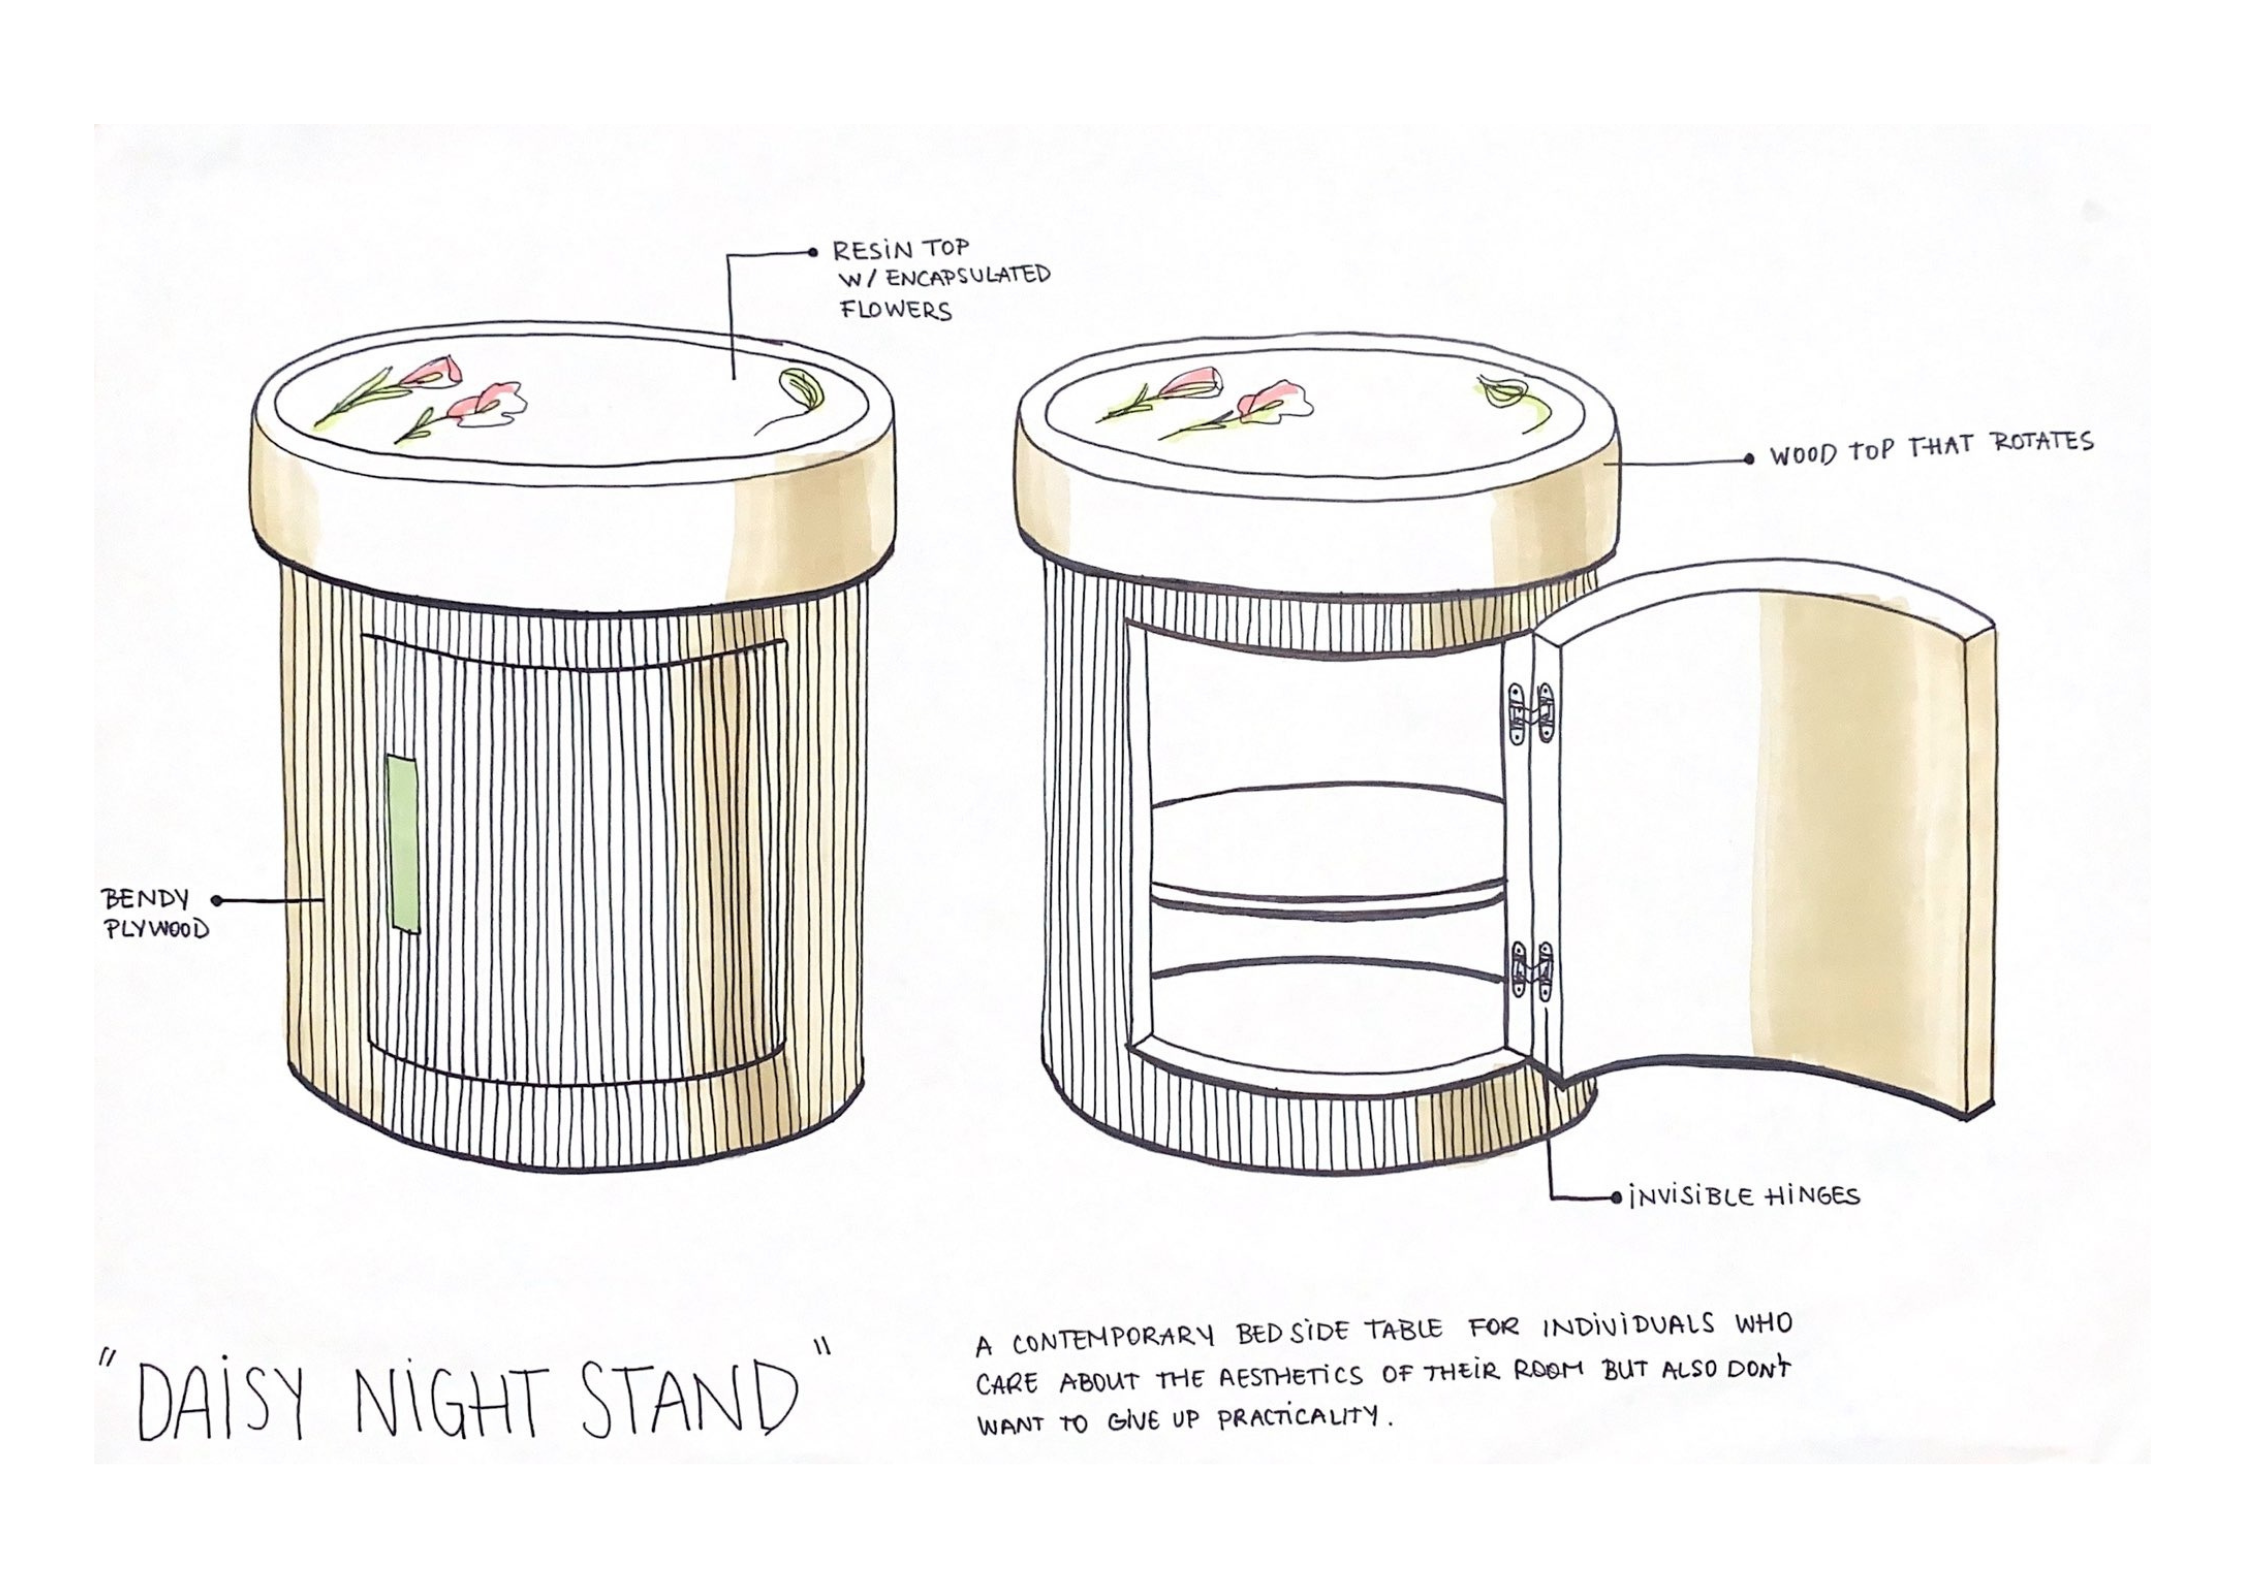 RESIN TOP
W/ ENCAPSULATED
FLOWERS
WOOD TOP THAT ROTATES
BENDY
PLYWOOD
INVISIBLE HINGES
"DAISY NIGHT STAND"
A CONTEMPORARY BEDSIDE TABLE FOR INDIVIDUALS WHO
CARE ABOUT THE AESTHETICS OF THEIR ROOM BUT ALSO DON'T
WANT TO GIVE UP PRACTICALITY.